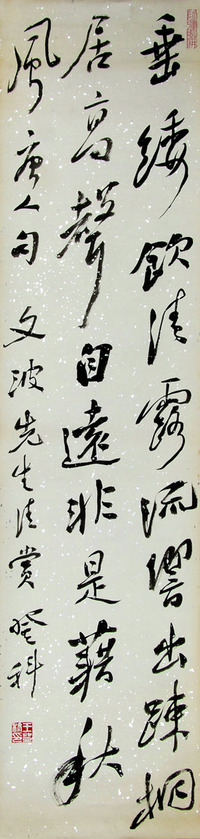 垂緌飲清露流響出疎桐
居高聲自遠非是藉秋
風 唐人句 文波先生清賞 登科